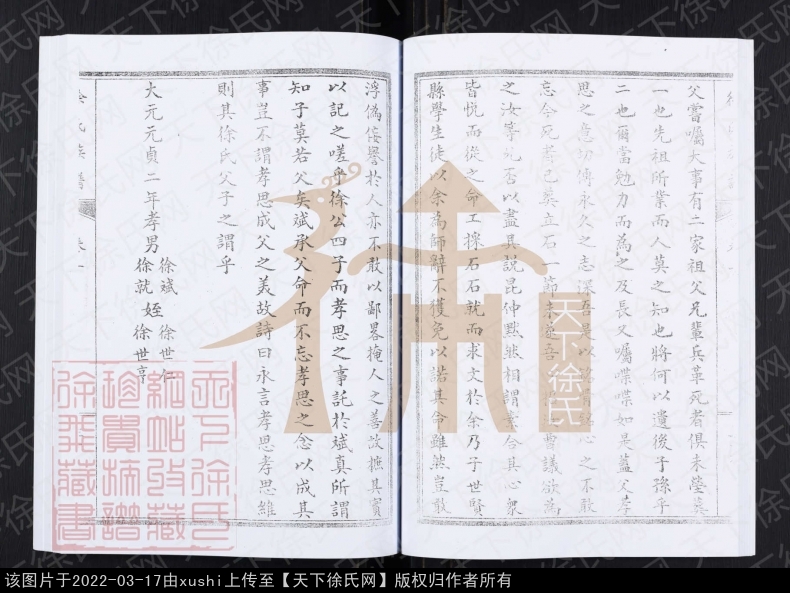 父嘗囑大事有二家祖父兄輩兵革死者俱未塋葬
一也先祖所業而人莫之知也將何以遺後子孫乎
二也爾當勉力而為之及長父囑喋喋如是蓋父孝
思之意切傳永久之志深吾是以銘心之不敢
忘今死者已葬立石一節未遂吾曹議欲為
之汝等允否以盡其說昆仲默然相謂素合其心衆
皆悦而從之命工採石石就而求文於余乃子世賢
縣學生徒以余為師辭不獲免以諾其命雖然豈敢
浮偽佞譽於人亦不敢以鄙畧掩人之善故摭其實
以記之嗟乎徐公四子而孝思之事託於斌真所謂
知子莫若父矣斌承父命而不忘孝思之念以成其
事豈不謂孝思成父之美故詩曰永言孝思孝思維
則其徐氏父子之謂乎
大元元貞二年孝男徐斌徐就姪徐世仁徐世亨
徐氏族譜
卷一
天下徐氏
天下徐氏网
天下徐氏
网站收藏
珍貴族譜
徐我藏書
该图片于2022-03-17由xushi上传至【天下徐氏网】版权归作者所有